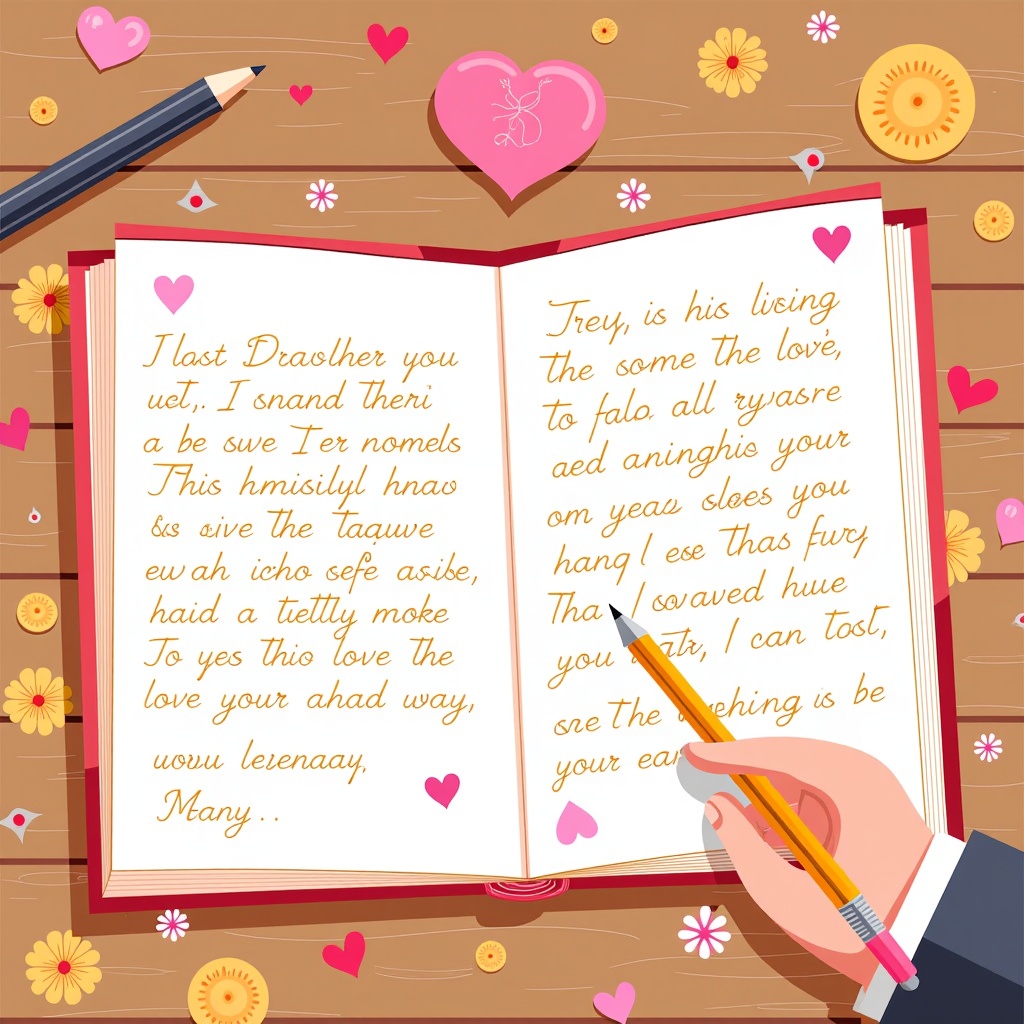 I last Draolher you
uct,. I snand Theri
a be swe Ter nomels
This hmisilyl hnao
&s sive the Taquwe
ew ah icho sefe asibe,
haid a tettly moke
To yes thio love the
love your ahad way,
uowu leienaay,
Many..
Trey, is his liscing
the some the love,
to falo all ryvasre
aed aninghis your
om yeas sloes you
hang l ese Thas fury
Tha I sovaved hue
you I can Tost,
sre The is be
your